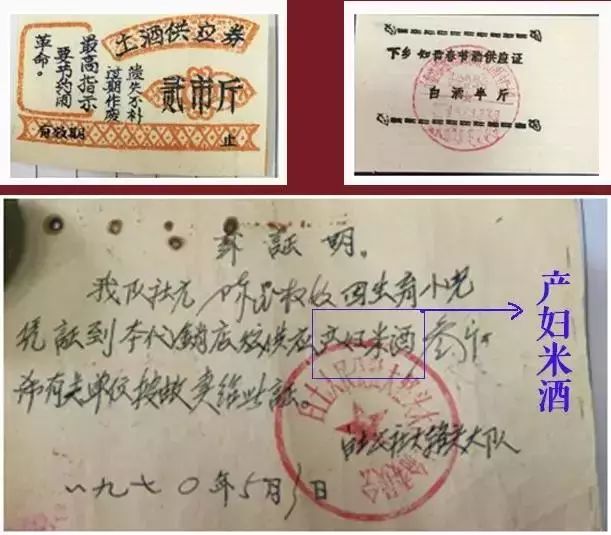 土酒供应券
最高指示
要节约闹
革命。
贰市斤
遗失不补
过期作废
有效期 止
下乡知青春节酒供应证
白酒半斤
証明。
我队社员 因生育小儿
凭証到本代銷店 供应产妇米酒叁斤
希有关单位按 卖给此証。
公社大 大队
一九七〇年5月 日
产妇米酒